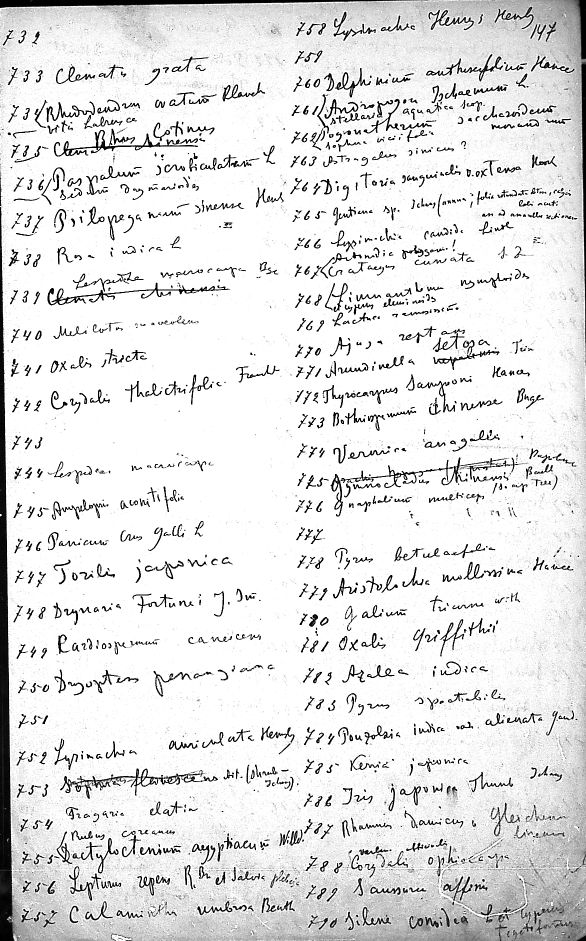 732
733 Clematis grata
734 Rhododendron ovatum Planch
Vitis Labrusca
735 Clematis chinensis
Rhus Cotinus
736 Paspalum scrobiculatum L
Sedum
737 Psilopeganum sinense Hemsl
738 Rosa indica L
Lespedeza macrocarpa Bge
739 Clematis chinensis
740 Melilotus suaveolens
741 Oxalis stricta
742 Corydalis thalictrifolia Franch
743
744 Lespedeza macrocarpa
745 Ampelopsis aconitifolia
746 Panicum Crus Galli L
747 Torilis japonica
748 Drynaria Fortunei J. Sm.
749 Cardiospermum canescens
750 Dryopteris penangiana
751
752 Lysimachia auriculata Hemsly
753
754 Fragaria elatior
Rubus coreanus
755 Dactyloctenium aegyptiacum Willd
756 Lepturus repens R. Br et Salvia plebeja
757 Calamintha umbrosa Benth
147
758 Lysimachia Henryi Hemsly
759
760 Delphinium anthriscifolium Hance
761 Andropogon Ischaemum L.
Stellaria aquatica Scop.
762 Pogonatherum saccharoideum
Sophora viciifolia
763 Astragalus sinicus ?
764 Digitaria sanguinalis v. extensa
765 Gentiana sp.
766 Lysimachia candida Lindl
767 Crataegus cuneata S Z
768 Limnanthemum nymphoides
769 Lactuca
770 Ajuga reptans
771 Arundinella nepalensis Trin
setosa
772 Thyrocarpus Sampsoni Hance
773 Bothriospermum Chinense Bnge
774 Veronica anagalis
775 Gymnocladus chinensis Baill
776 Gnaphalium multiceps (Soap Tree)
777
778 Pyrus betulaefolia
779 Aristolochia mollissima Hance
780 Galium tricorne With
781 Oxalis Griffithii
782 Azalea indica
783 Pyrus spectabilis
784 Pouzolzia indica var. alienata Gaud.
785 Kerria japonica
786 Iris japonica Thunb
787 Rhamnus Davuricus Gleichenia
linearis
788 Corydalis ophiocarpa
789 Saussurea affinis
790 Silene conoidea L et Cyperus